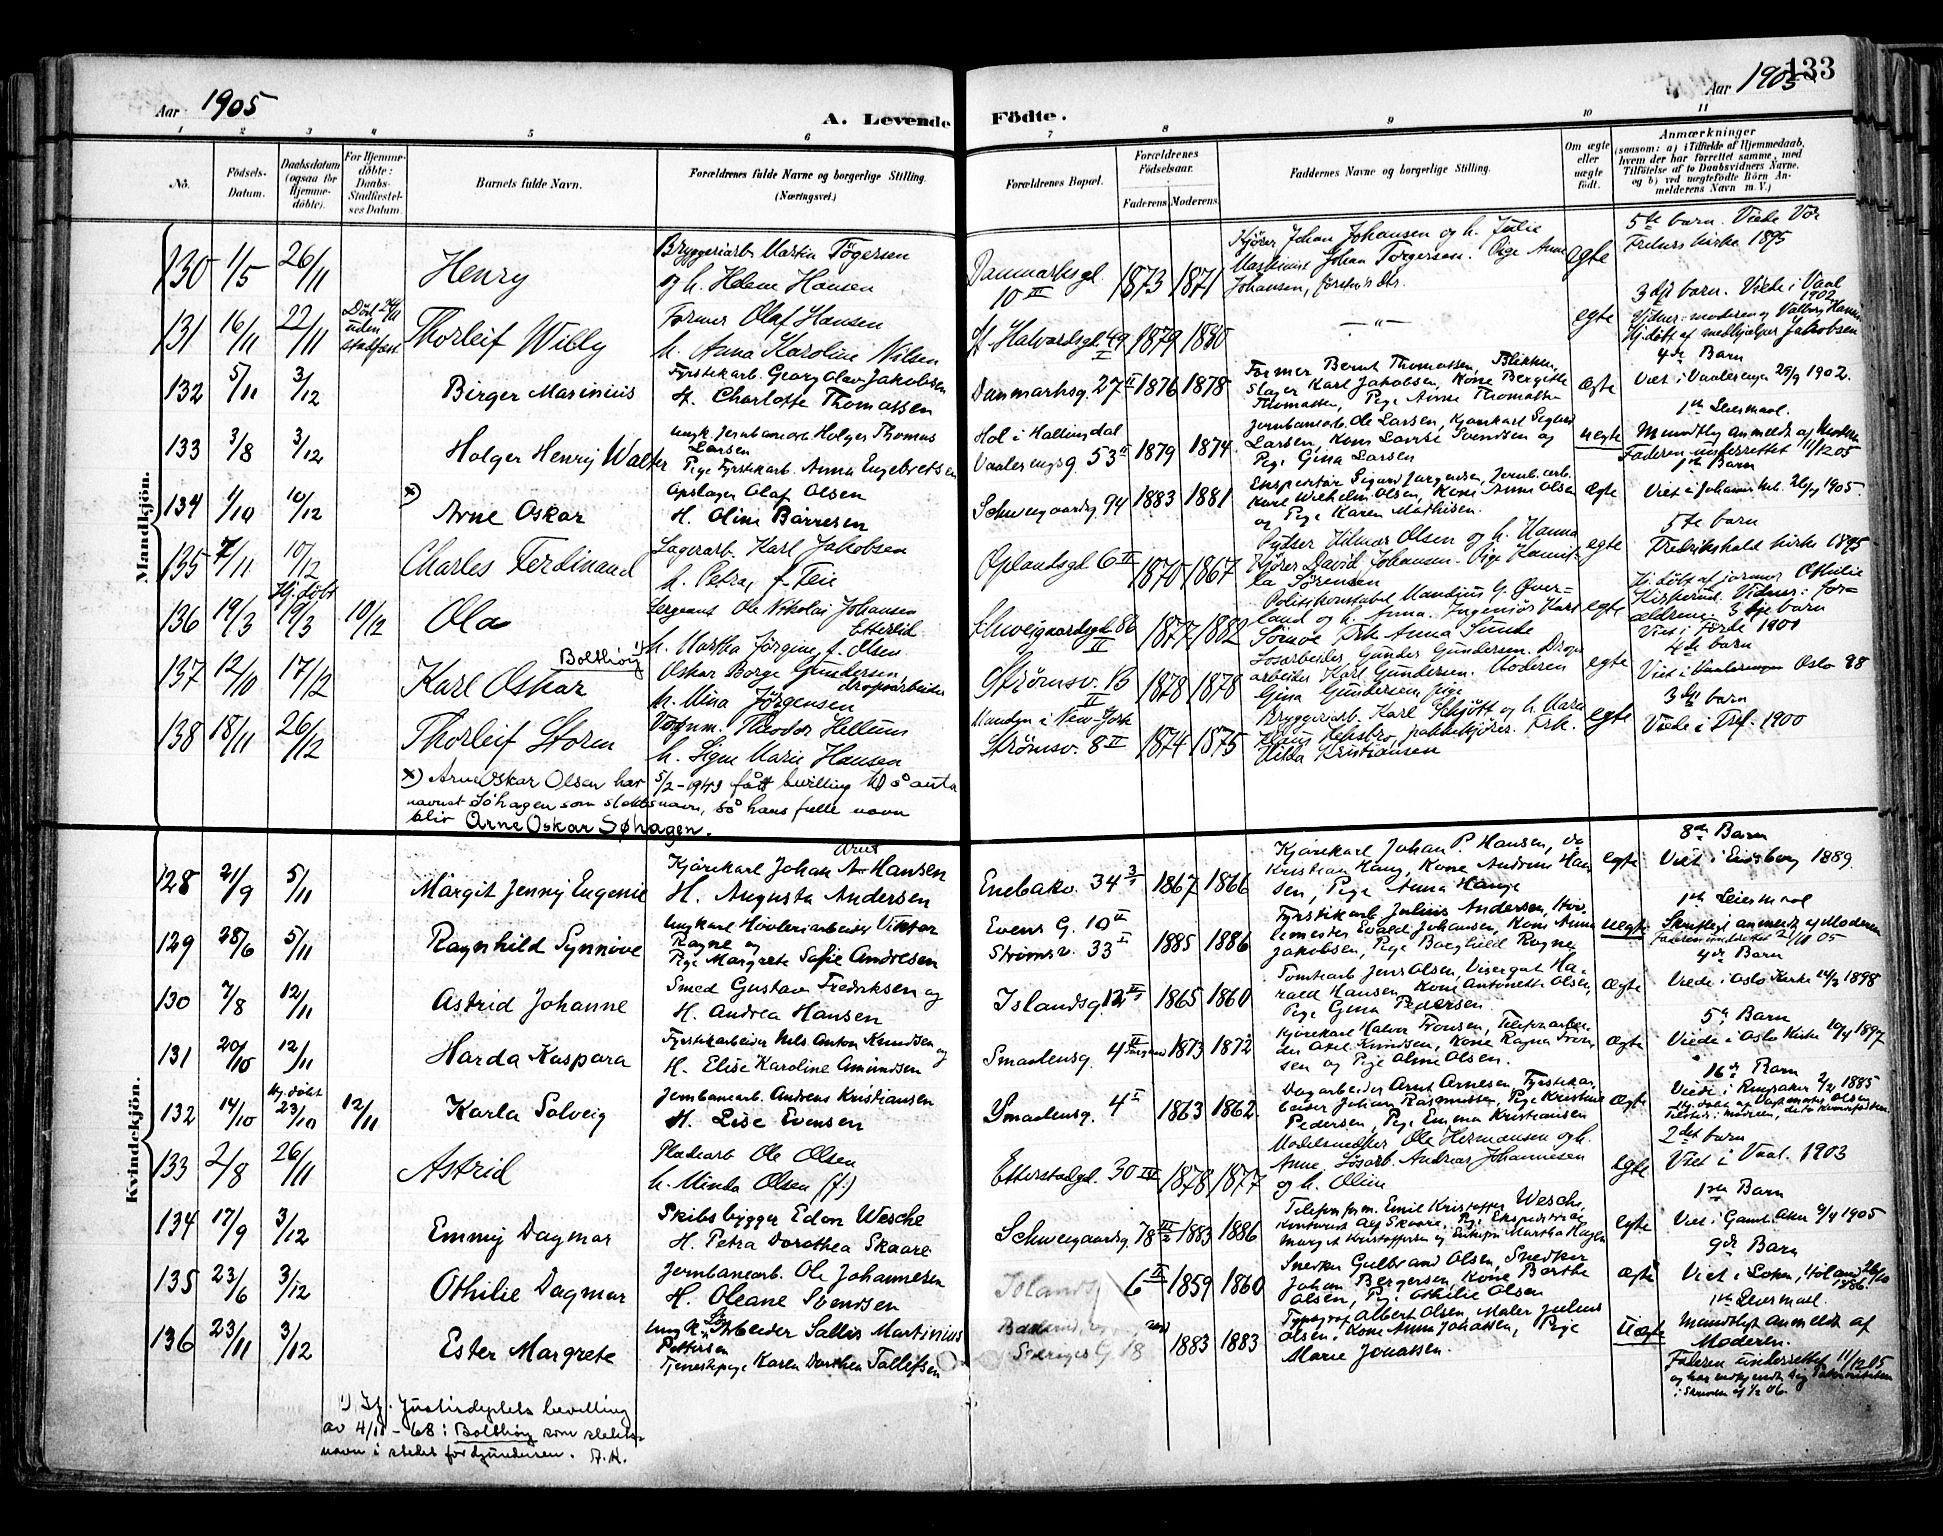 Aar 1905
A. Levende Födte.
Aar 1905 133
1 2 3 4 5 6 7 8 9 10 11
No.
Födsels-Datum.
Daabsdatum (ogsaa for Hjemmedöbte).
For Hjemmedöbte: Daabs-Stadfæstelses Datum.
Barnets fulde Navn.
Forældrenes fulde Navne og borgerlige Stilling. (Næringsvei.)
Forældrenes Bopæl.
Forældrenes Födselsaar.
Faderens. Moderens.
Faddernes Navne og borgerlige Stilling.
Om ægte eller uægte födt.
Anmærkninger
(saasom: a) i Tilfælde af Hjemmedaab, hvem der har forrettet samme, med Tilföielse af to Daabsvidners Navne, og b) ved uægtefödte Börn Anmelderens Navn m. V.)
Mandkjön.
130 1/5 26/11 Henry
Bryggeriarb. Martin Tögersen
og h. Helene Hansen
Danmarksgt. 10 III 1873 1871
Kjörer Johan Johansen og h. Julie
Maskinist Johan Torgersen. Pige Anne
Johansen,
egte
5te barn. Viede Vor
Frelsers kirke 1895
131 16/11 22/11
Död 24/11 uden stadfæst.
Thorleif Willy
Former Olaf Hansen
h. Anna Karoline Nilsen
St Halvardsgt 49 I 1879 1880
— „ —
egte
3dje barn. Viede i Vaal 1902
Vidner: moderen og Valborg Hansen
Hj. döbt af medhjelper Jakobsen
132 5/11 3/12 Birger Marinius
Fyrstikarb. Georg Olav Jakobsen
H. Charlotte Thomassen
Danmarksg. 27 II 1876 1878
Former Bernt Thomassen, Blikken
slager Karl Jakobsen, Kone Bergitte
Thomassen, Pige Anne Thomassen
Ægte
4de Barn
Viet i Vaalerengen 29/9 1902.
133 3/8 3/12 Holger Henry Walter
ungk. Jernbanearb. Holger Thomas
Larsen
Pige Fyrstikarb. Anna Engebretsen
Hol i Hallingdal
Vaalerengsg. 53 II 1879 1874
Jernbanearb. Ole Larsen, Ungkarl Sigurd
Larsen, Kone Lovise Svendsen og
Pige Gina Larsen
uegte
1ste Leiermaal.
Mundtlig anmeldt af Moderen
Faderen underrettet 11/12 05
134 1/10 10/12 x) Arne Oskar
Opslager Olaf Olsen
H. Oline Børresen
Schweigaardsg. 94 1883 1881
Ekspeditør Sigurd Jørgensen, Jernb.arb.
Karl Wilhelm Olsen, Kone Anne Olsen
og Pige Karen Mathisen.
Ægte
1ste Barn
Viet i Johannes k. 26/7 1905.
135 7/11 10/12 Charles Ferdinand
Lagerarb. Karl Jakobsen
h. Petra, f. Teie
Oplandsgt 6 II 1870 1867
Pudser Hilmar Olsen og h. Hanna
Kjörer David Johansen. Pige Kamil-
la Sörensen
egte
5te barn
Fredrikshald kirke 1895
136 19/3 Hj. döbt 19/3 10/12 Ola
Sergeant Ole Nikolai Johansen
Etterlid
h. Martha Jörgine f. Olsen
Schweigaardsgt. 86 II 1877 1882
Politikonstabel Mandius G. Över-
land og h. Anna. Ingeniör Karl
Frk Anna Sunde
egte
Hj. döbt af jormor Othilie
Vidner: for-
ældrene. 3dje barn
Viet i Förde 1900
137 12/10 17/12 Karl Oskar Bolthöy 1)
Oskar Borge Gundersen,
dropsarbeider
h. Mina Jörgensen
Strömsv. 13 II 1878 1878
Losarbeider Gunder Gundersen. Drops
arbeider Karl Gundersen. Moderen
Gina Gundersen pige
egte
4de barn
Viet i Oslo 98
138 18/11 26/12 Thorleif Storm
Theodor Hellum
h. Signe Marie Hansen
Manden i New-York
Strömsv. 8 II 1874 1875
Bryggeriarb. Karl Schjött og h. Mara
pakkekjörer. Frk.
Hilda Kristiansen
egte
3dje barn
Viede i Vrf. 1900
x) Arne Oskar Olsen har 5/2-1943 fått bevilling til å anta
navnet Søhagen som slektsnavn, så hans fulle navn
blir Arne Oskar Søhagen.
Kvindekjön.
128 2/9 5/11 Margit Jenny Eugenie
Kjörekarl Johan Arnt Hansen
H. Augusta Andersen
Enebakv. 34 1867 1866
Kjörekarl Johan P. Hansen, do
Kristian Haug, Kone Andrine Han
sen, Pige Anna Hauge
egte
8de Barn
Viet i Eidsberg 1889.
129 28/6 5/11 Ragnhild Synnöve
Ungkarl Høvleriarbeider Viktor
Ragne og
Pige Margrete Sofie Andresen
Evens G. 10 II
Strömsv. 33 I 1885 1886
Fyrstikarb. Julius Andersen,
Evald Johansen, Kone Anna
Jakobsen, Pige Borghild Ragne
uegte
1ste Leiermaal
Skriftligt anmeldt af Moderen
Faderen underrettet 21/11 05
130 7/8 12/11 Astrid Johanne
Smed Gustav Fredriksen og
H. Andrea Hansen
Islandsg. 12 1865 1860
Tomtearb. Jens Olsen, Visergut Ha-
rald Hansen, Kone Antonette Olsen,
Pige Gina Pedersen
Ægte
4de Barn
Viede i Oslo Kirke 14/3 1898
131 20/10 12/11 Harda Kaspara
Fyrstikarbeider Nils Anton Knudsen og
H. Elise Karoline Amundsen
Smaalensg. 4 III 1873 1872
Kjörekarl Halvor Fronsen, Telefonarbei-
der Axel Knudsen, Kone Ragna Fron
sen og Pige Aline Olsen.
Ægte
5te Barn
Viede i Oslo Kirke 10/4 1897
132 14/10 Hj. döbt 23/10 12/11 Karla Solveig
Jernbanearb. Andreas Kristiansen
H. Lise Evensen
Smaalensg. 4 I 1863 1862
Dagarbeider Arnt Arnesen, Fyrstikar-
beider Johan Rasmussen, Pige Kristine
Pedersen, Pige Emma Kristiansen
Ægte
16de Barn
Viede i Ringsaker 2/2 1885
133 2/8 26/11 Astrid
Pladearb Ole Olsen
h. Minda Olsen (f.)
Etterstadgt. 30 IV 1878 1877
Modelsnedker Ole Hermansen og h.
Anne. Løsarb. Andreas Johannesen
og h. Oline
egte
2det barn
Viet i Vaal. 1903
134 17/9 3/12 Emmy Dagmar
Skibsbygger Edon Wesche
H. Petra Dorothea Skaare
Schweigaardsg. 78 1883 1886
Telefonform. Emil Kristoffer Wesche,
Kontorist Alf Skaare, Pige Ekspeditrice
Margit Kristoffersen og Enkefru Martha Hagen
egte
1ste Barn
Viet i Gaml. Aker 9/4 1905
135 23/6 3/12 Othilie Dagmar
Jernbanearb. Ole Johannesen
H. Oleane Svendsen
Islandsg 6 II 1859 1860
Snedker Gulbrand Olsen, Snedker
Johan Bergersen, Kone Berthe
Olsen, Pige Othilie Olsen
Ægte
9de Barn
136 23/11 3/12 Ester Margrete
Ungk. Arbeider Sallis Martinius
Pettersen
Tjenestepige Karen Dorthea Tollefsen
Sveriges G. 18 1883 1883
Typograf Albert Olsen, Maler Julius
Olsen, Kone Anna Johansen, Pige
Marie Jonassen.
Uægte
1ste Leiermaal.
Mundtligt anmeldt af
Moderen.
Faderen underrettet 11/12 05
og har vedkjendt sig Paterniteten
i Skrivelse af 1/2 06.
1) Jfr. Justisdeptets bevilling
av 4/11 - 68: Bolthöy som slekts-
navn i stedet for Gundersen. A.K.